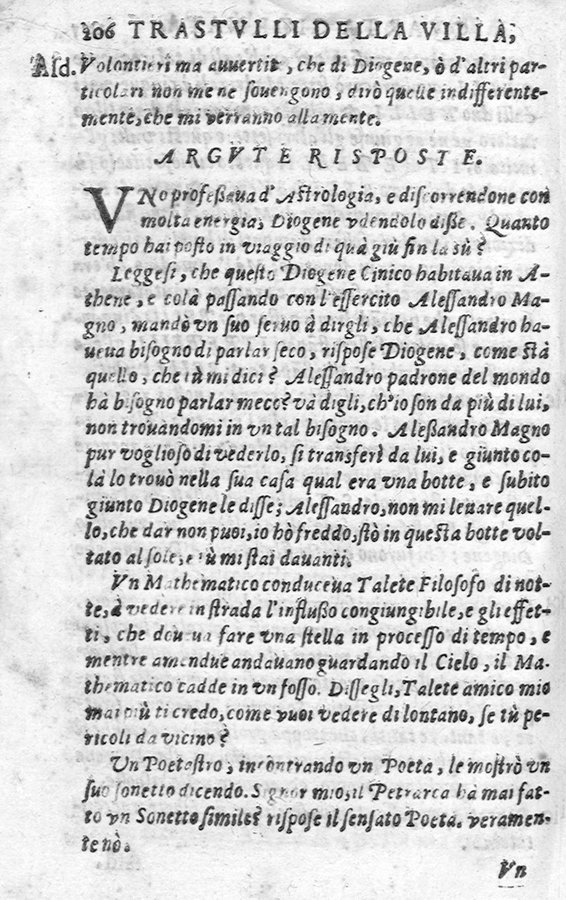 206 TRASTVLLI DELLA VILLA,
Asd. Volontieri ma auuertite, che di Diogene, ò d'altri par-
ticolari non me ne souengono, dirò quelle indifferente-
mente, che mi verranno alla mente.
ARGVTE RISPOSTE.
VNo profeßaua d'Astrologia, e discorrendone con
molta energia, Diogene vdendolo diße. Quanto
tempo hai posto in viaggio di quà giù fin la sù?
Leggesi, che questo Diogene Cinico habitaua in A-
thene, e colà passando con l'essercito Alessandro Ma-
gno, mandò vn suo seruo à dirgli, che Alessandro ha-
ueua bisogno di parlar seco, rispose Diogene, come stà
quello, che tù mi dici? Alessandro padrone del mondo
hà bisogno parlar meco? và digli, ch'io son da più di lui,
non trouandomi in vn tal bisogno. Aleßandro Magno
pur voglioso di vederlo, si transferì da lui, e giunto co-
là lo trouò nella sua casa qual era vna botte, e subito
giunto Diogene le disse; Alessandro, non mi leuare quel-
lo, che dar non puoi, io hò freddo, stò in questa botte vol-
tato al sole, e tù mi stai dauanti.
Vn Mathematico conduceua Talete Filosofo di not-
te, à vedere in strada l'influßo congiungibile, e gli effet-
ti, che doueua fare vna stella in processo di tempo, e
mentre amendue andauano guardando il Cielo, il Ma-
thematico cadde in vn fosso. Dissegli, Talete amico mio
mai più ti credo, come vuoi vedere di lontano, se tù pe-
ricoli da vicino?
Vn Poetastro, incontrando vn Poeta, le mostrò vn
suo sonetto dicendo. Signor mio, il Petrarca hà mai fat-
to vn Sonetto simile? rispose il sensato Poeta. veramen-
te nò.
Vn